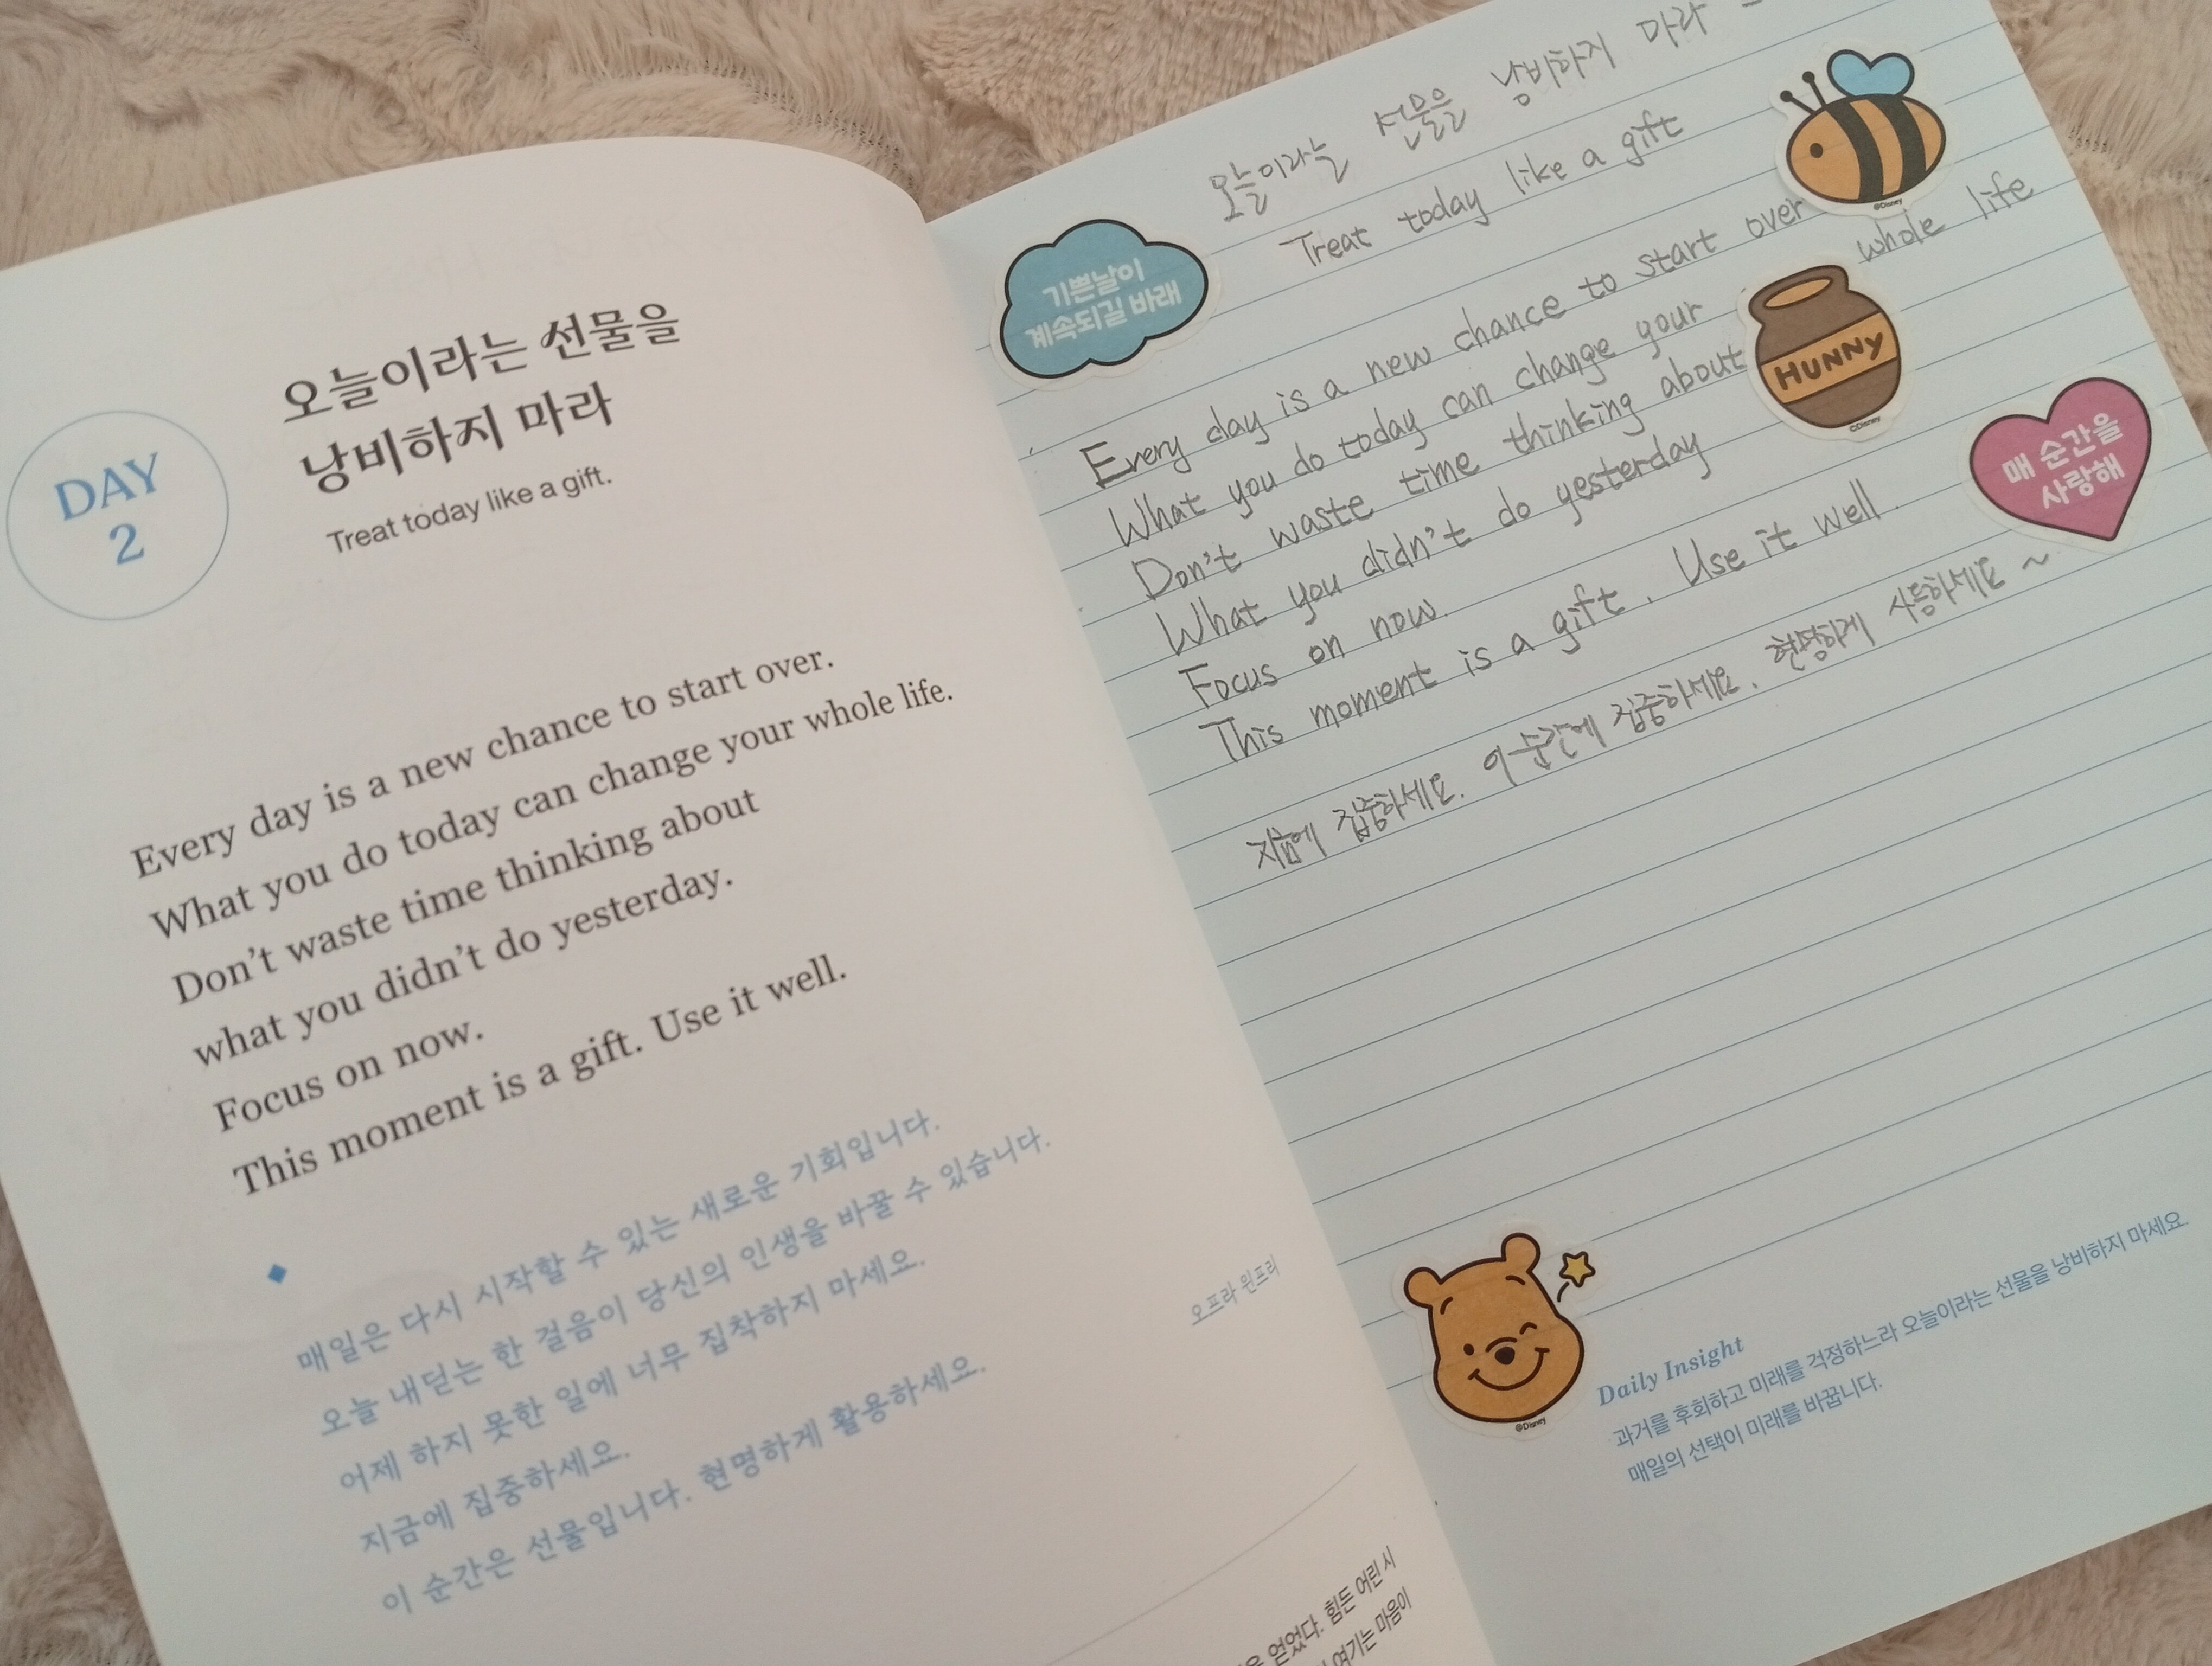 DAY
2
오늘이라는 선물을
낭비하지 마라
Treat today like a gift.
Every day is a new chance to start over.
What you do today can change your whole life.
Don't waste time thinking about
what you didn't do yesterday.
Focus on now.
This moment is a gift. Use it well.
매일은 다시 시작할 수 있는 새로운 기회입니다.
오늘 내딛는 한 걸음이 당신의 인생을 바꿀 수 있습니다.
어제 하지 못한 일에 너무 집착하지 마세요.
지금에 집중하세요.
이 순간은 선물입니다. 현명하게 활용하세요.
오프라 윈프리
얻었다. 힘든 어린 시
여기는 마음이
오늘이라는 선물을 낭비하지 마라
Treat today like a gift
기쁜날이
계속되길 바래
©Disney
Every day is a new chance to start over
What you do today can change your whole life
HUNNY
©Disney
Don't waste time thinking about
What you didn't do yesterday
매 순간을
사랑해
Focus on now.
This moment is a gift. Use it well.
지금에 집중하세요. 이 순간에 집중하세요. 현명하게 사용하세요 ~
©Disney
Daily Insight
과거를 후회하고 미래를 걱정하느라 오늘이라는 선물을 낭비하지 마세요.
매일의 선택이 미래를 바꿉니다.